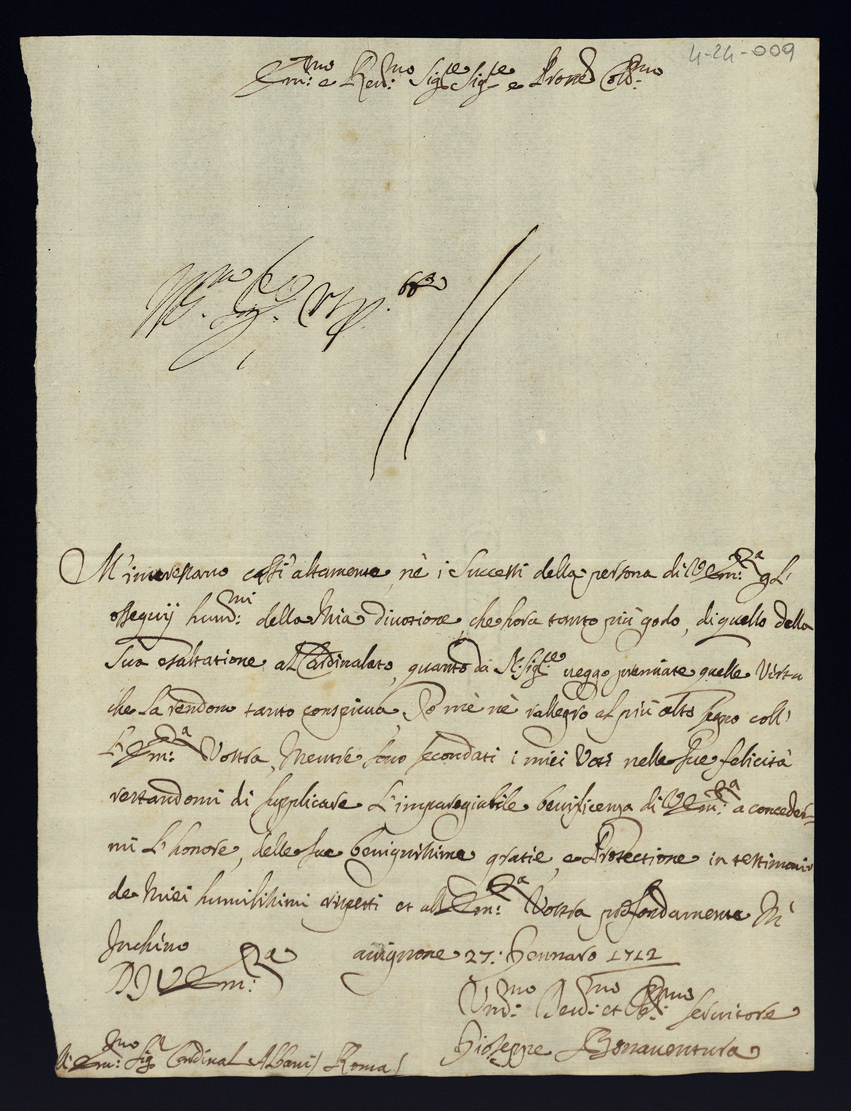 4-24-009
Em:mo e Rev:mo Sig:re Sig:re e Prone Col:mo
M'interessano cossi altamente, nè i Successi della persona di V Em:za gl'
ossequij hum:mi della Mia divotione, che hora tanto più godo, di quello della
Sua esaltatione al Cardinalato, quanto da N. Sig:re veggo premiate quelle Virtu
che La rendono tanto conspicua, Io mè nè rallegro al più alto segno coll'
L'Em:za Vostra, Mentre sono secondati i miei Voti nelle sue felicità
restandomi di supplicare L'impareggiabile beneficenza di V Em:za a conceder-
mi L'honore, delle sue benignissime gratie, e Protectione in testimonio
de Miei humilissimi rispetti et all'Em:za Vostra profondamente M'
Inchino
Di V Em:za avignone 27: Gennaro 1712
Um:mo Dev:mo et Ob:mo servitore
Em:mo Sig:r Cardinal Albani / Roma /
Gioseppe Bonaventura